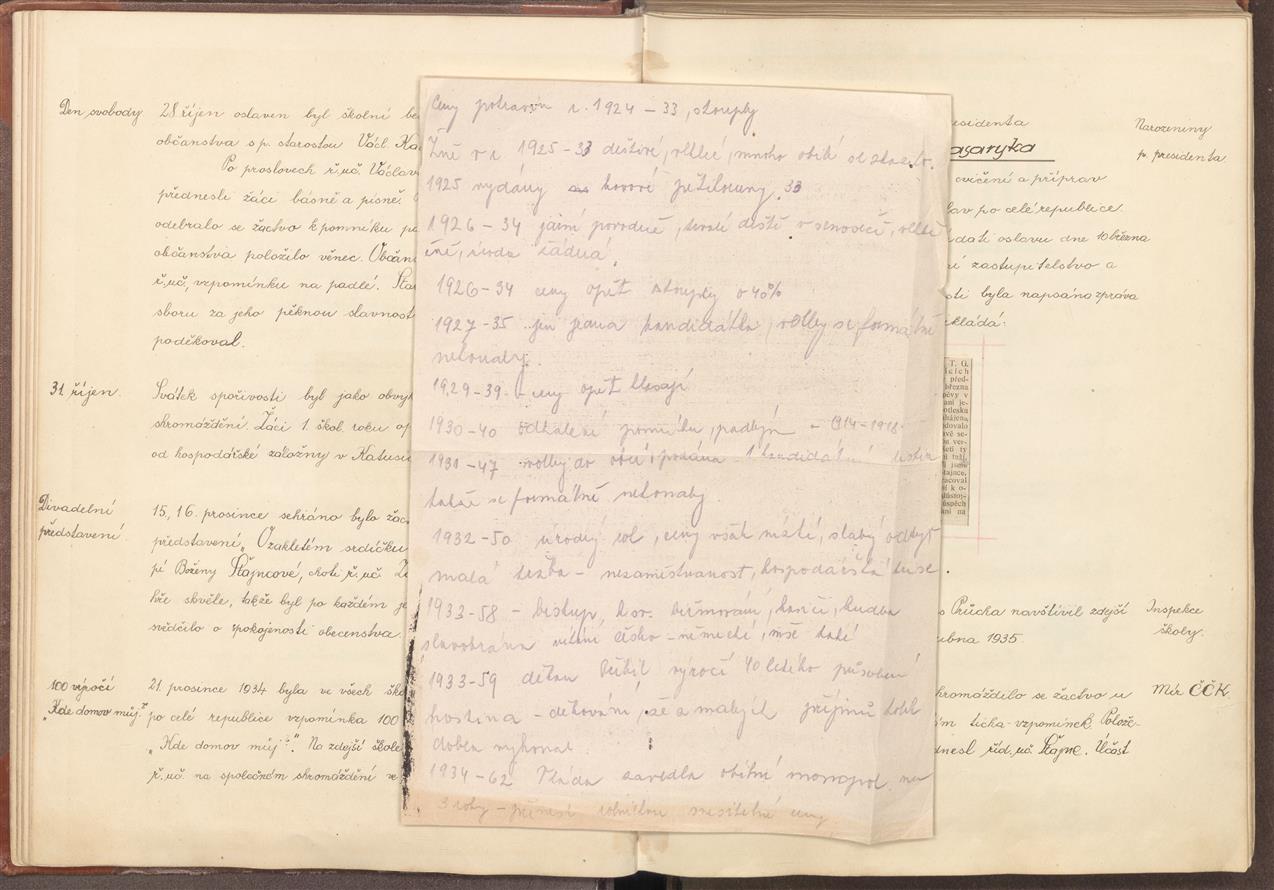 Den svobody
28 říjen oslaven byl školní be
občanstva s p. starostou Václ. Ka
Po proslovech ř. uč. Václav
přednesli žáci básně a písně.
odebralo se žactvo k pomníku pa
občanstva položilo věnec. Občan
ř. uč. vzpomínku na padlé.
sboru za jeho pěknou slavnost
poděkoval.
31. říjen.
Svátek spořivosti byl jako obvyk
shromáždění. Žáci 1. škol. roku
od hospodářské záložny v Katusi
Divadelní
představení.
15., 16. prosince sehráno bylo žac
představení „O zakletém srdíčku
pí Boženy Štajncové, choti ř. uč.
hře skvěle, takže byl po každém je
svědčilo o spokojenosti obecenstva.
100 výročí
„Kde domov můj."
21. prosince 1934 byla ve všech ško
po celé republice vzpomínka 100
„Kde domov můj". Na zdejší škole
ř. uč. na společném shromáždění ve
Ceny potravin r. 1924 – 33, stouply
Žně v r. 1925 – 33 deštivé, vlhké, mnoho obilí
1925 vydány kovové pětikoruny 33
1926 – 34 jarní povodně, trvalé deště v senoseči, vlhké
žně, úroda žádná.
1926 – 34 ceny opět stouply o 40%
1927 – 35 jen jedna kandidátka, volby se formálně
nekonaly.
1929 – 39. – ceny opět klesají
1930 – 40 odhalení pomníku padlým – 1914–1918
1931 – 47 volby do obcí, podána 1 kandidátní listina
takže se formálně nekonaly.
1932 – 50 úrodný rok, ceny však nízké, slabý odbyt
malá tržba – nezaměstnanost, hospodářská krise.
1933 – 58 – biskup, kor. biřmování, hudba
slavobrána vítání česko – německé, mše také
1933 – 59 děkan výročí 40 letého působení
hostina – děkování, že z malých příjmů tolik
dobra vykonal
1934 – 62 Vláda zavedla obilní monopol na
3 roky – přinesl rolníkům snesitelné ceny
residenta
asaryka
cvičení a příprav
lav po celé republice.
dati oslavu dne 10 března
ní zastupitelstvo a
sti byla napsána zpráva
kládá:
Narozeniny
p. presidenta
T. G.
ících
před-
března
pěvy v
ani je-
otlesku
s Průcha navštívil zdejší
ubna 1935.
Inspekce
školy.
hromáždilo se žactvo u
ím ticha – vzpomínek. Polože-
dnesl říd. uč. Štajnc. Účast
Mír ČČK